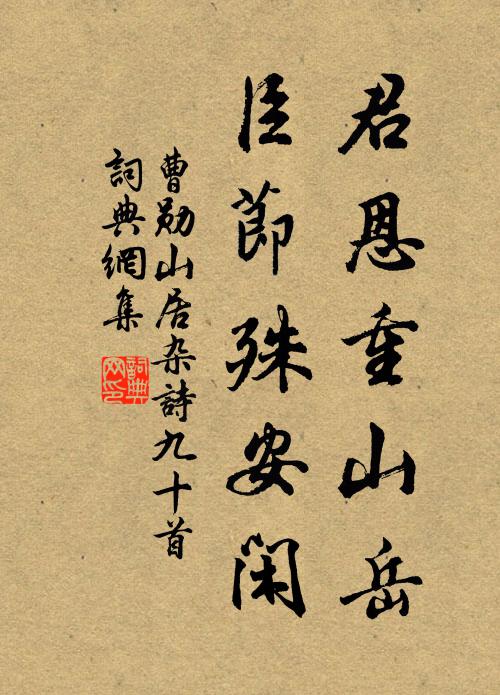 君恩重山岳
臣節殊安閑
曹勛山居杂詩九十首
詞典網集
詞典
网印